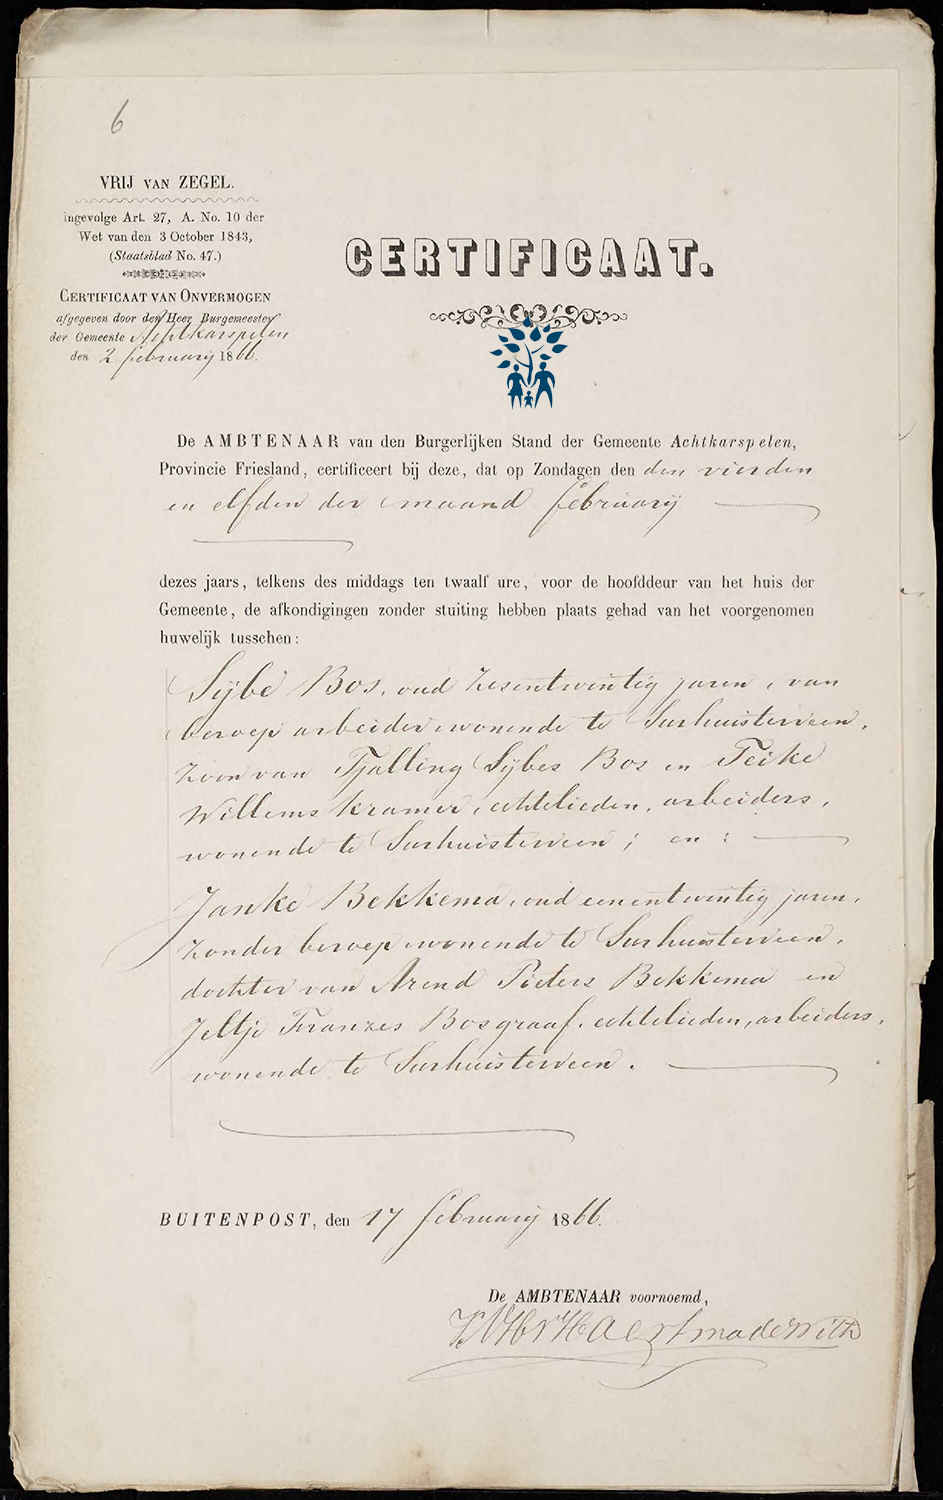 6
VRIJ VAN ZEGEL.
ingevolge Art. 27, A. No. 10 der
Wet van den 3 October 1843,
(Staatsblad No. 47.)
CERTIFICAAT VAN ONVERMOGEN
afgegeven door den Heer Burgemeester
der Gemeente Achtkarspelen
den 2 februarij 1866.
CERTIFICAAT.
De AMBTENAAR van den Burgerlijken Stand der Gemeente Achtkarspelen,
Provincie Friesland, certificeert bij deze, dat op Zondagen den den vierden
en elfden der maand februarij
dezes jaars, telkens des middags ten twaalf ure, voor de hoofddeur van het huis der
Gemeente, de afkondigingen zonder stuiting hebben plaats gehad van het voorgenomen
huwelijk tusschen:
Sijbe Bos, oud zesentwintig jaren, van
beroep arbeider wonende te Surhuisterveen,
zoon van Tjalling Sijbes Bos en Teike
Willems Kramer, echtelieden, arbeiders,
wonende te Surhuisterveen; en:
Janke Bekkema, oud eenentwintig jaren,
zonder beroep wonende te Surhuisterveen,
dochter van Arend Pieters Bekkema en
Jeltje Franzes Bosgraaf, echtelieden, arbeiders,
wonende te Surhuisterveen.
BUITENPOST, den 17 februarij 1866.
De AMBTENAAR voornoemd,